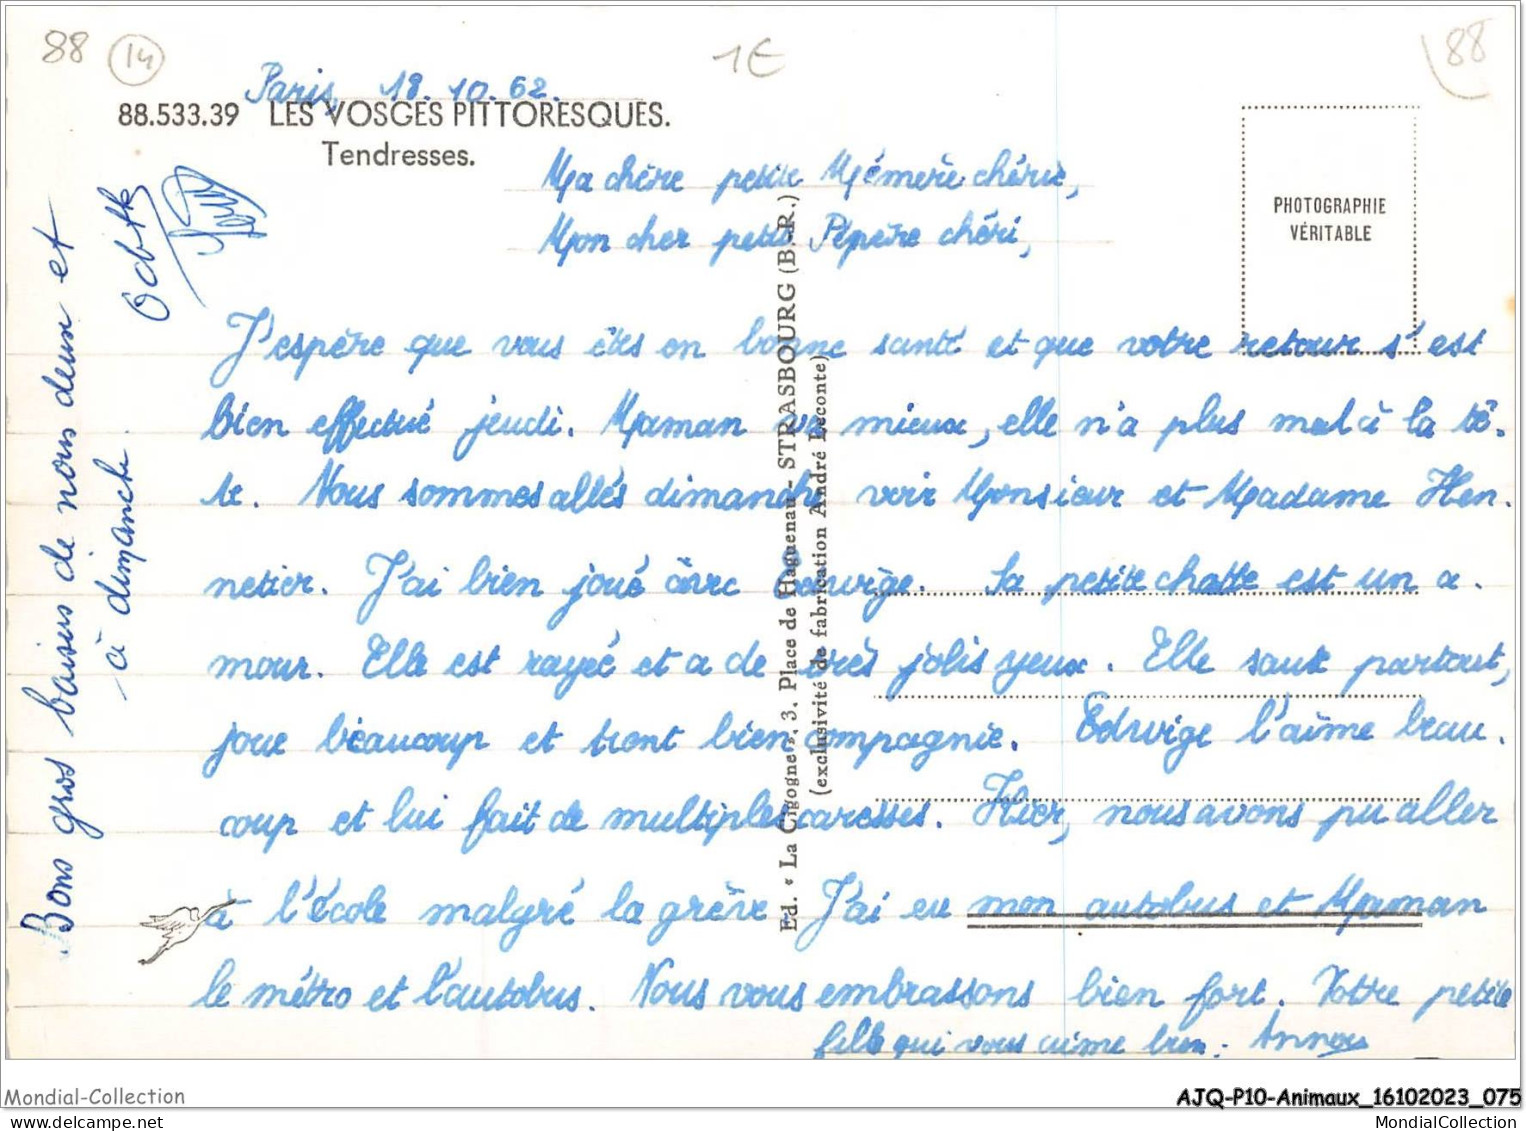 88 14
1€
88
Paris, 18.10.62.
88.533.39 LES VOSGES PITTORESQUES.
Tendresses.
PHOTOGRAPHIE
VÉRITABLE
Ma chère petite Mémère chérie,
Mon cher petit Pépère chéri,
J'espère que vous êtes en bonne santé et que votre retour s'est
bien effectué jeudi. Maman va mieux, elle n'a plus mal à la tê-
te. Nous sommes allés dimanche voir Monsieur et Madame Hen-
netier. J'ai bien joué avec Edwige. Sa petite chatte est un a-
mour. Elle est rayée et a de très jolis yeux. Elle saute partout,
joue beaucoup et tient bien compagnie. Edwige l'aime beau-
coup et lui fait de multiples caresses. Hier, nous avons pu aller
à l'école malgré la grève. J'ai eu mon autobus et Maman
le métro et l'autobus. Nous vous embrassons bien fort. Votre petite
fille qui vous aime bien. Annou
Bons gros baisers de nous deux et
à dimanche.
Ed. « La Cigogne », 3, Place de Haguenau - STRASBOURG (B.-R.)
(exclusivité de fabrication André Leconte)
Mondial-Collection
AJQ-P10-Animaux_16102023_075
MondialCollection